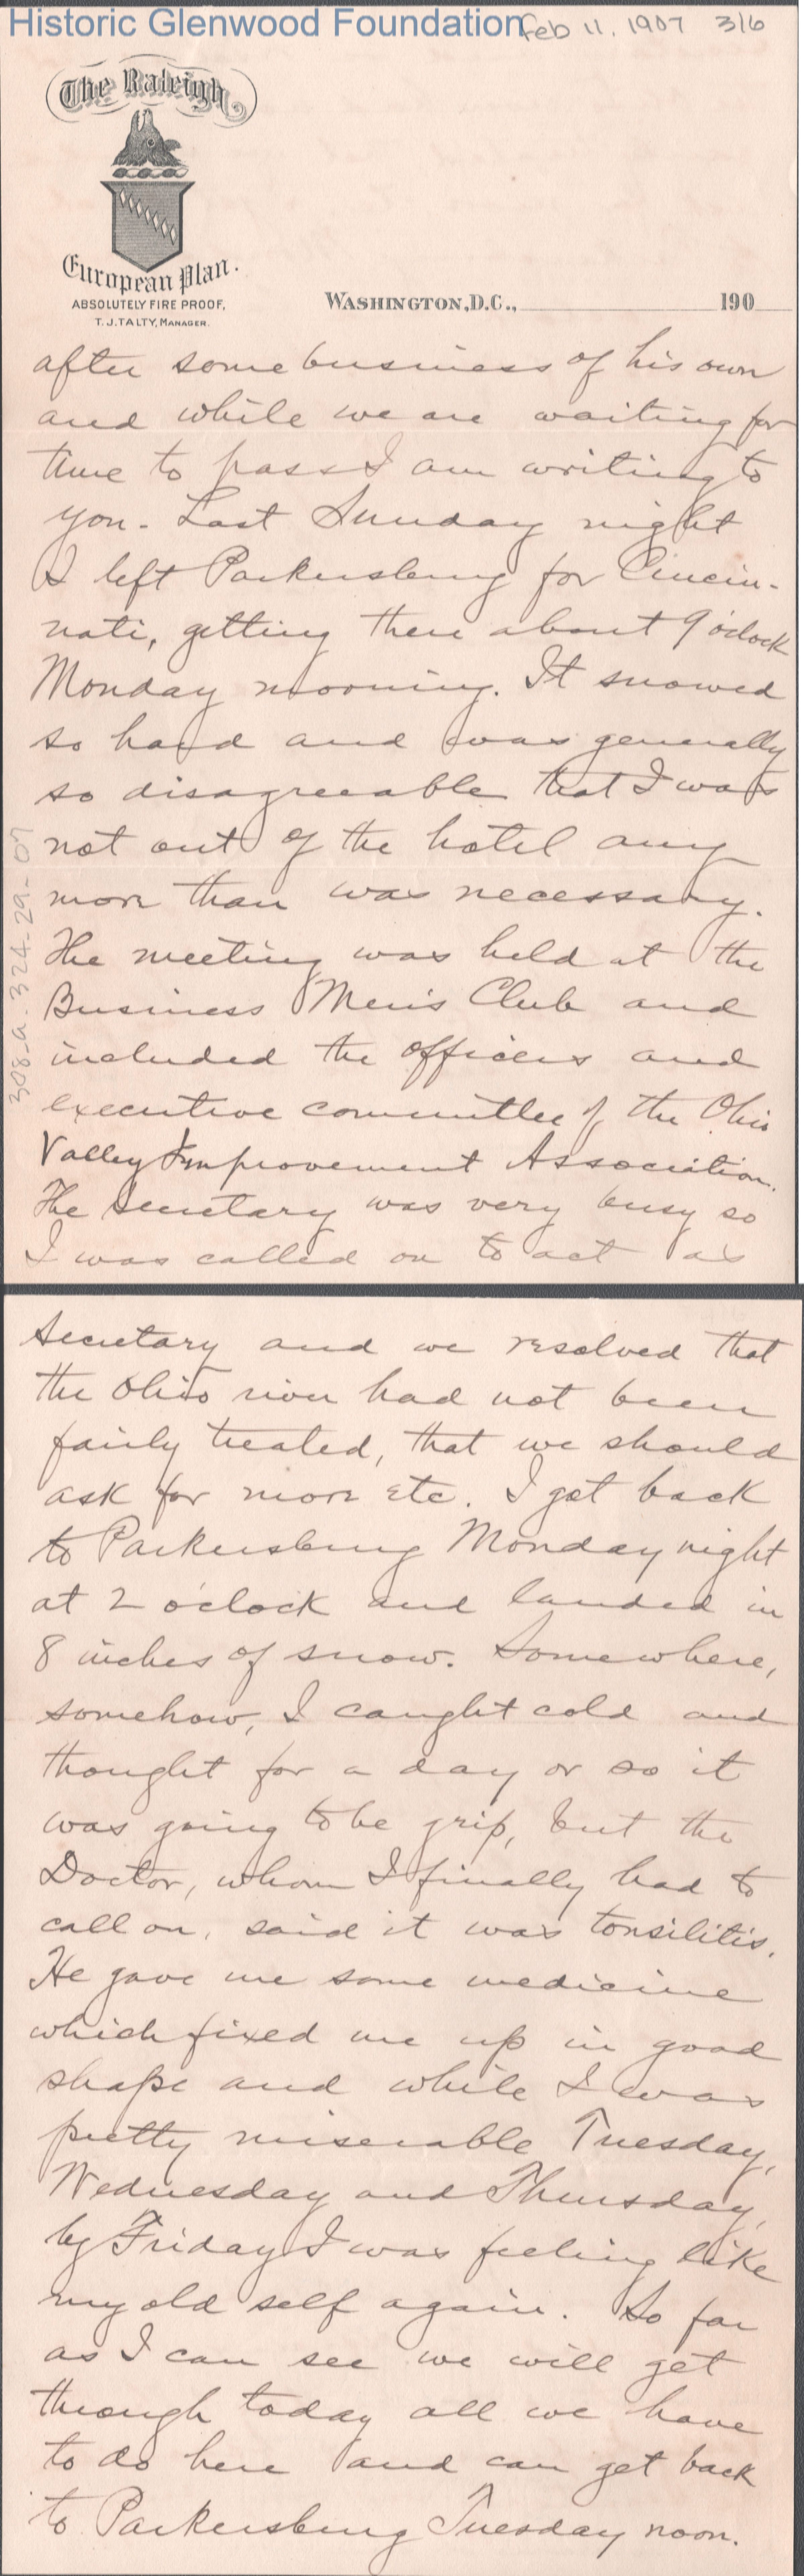 Historic Glenwood Foundation
Feb 11, 1907 316
The Raleigh.
European Plan.
ABSOLUTELY FIRE PROOF,
T. J. TALTY, MANAGER.
WASHINGTON, D.C., 190
after some business of his own
and while we are waiting for
time to pass I am writing to
you - Last Sunday night
I left Parkersburg for Cincin-
nati, getting there about 9 o'clock
Monday morning. It snowed
so hard and was generally
so disagreeable that I was
not out of the hotel any
more than was necessary.
The meeting was held at the
Business Men's Club and
included the officers and
executive committee of the Ohio
Valley Improvement Association.
The Secretary was very busy so
I was called on to act as
308-a-324-29-07
Secretary and we resolved that
the Ohio river had not been
fairly treated, that we should
ask for more etc. I got back
to Parkersburg Monday night
at 2 o'clock and landed in
8 inches of snow. Somewhere,
somehow, I caught cold and
thought for a day or so it
was going to be grip, but the
Doctor, whom I finally had to
call on, said it was tonsilitis.
He gave me some medicine
which fixed me up in good
shape and while I was
pretty miserable Tuesday,
Wednesday and Thursday,
by Friday I was feeling like
my old self again. So far
as I can see we will get
through today all we have
to do here and can get back
to Parkersburg Tuesday noon.